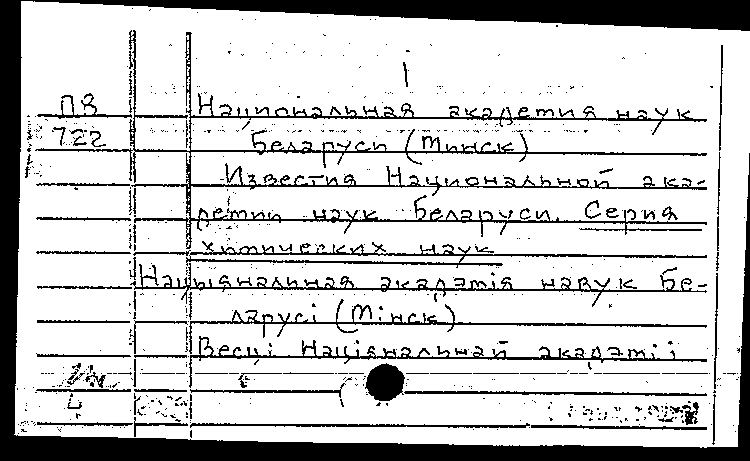 1
П8
722
Национальная академия наук
Беларуси (Минск)
Известия Национальной ака-
демии наук Беларуси. Серия
химических наук
Нацыянальная акадэмія навук Бе-
ларусі (Мінск)
Весці Нацыянальнай акадэміі
4